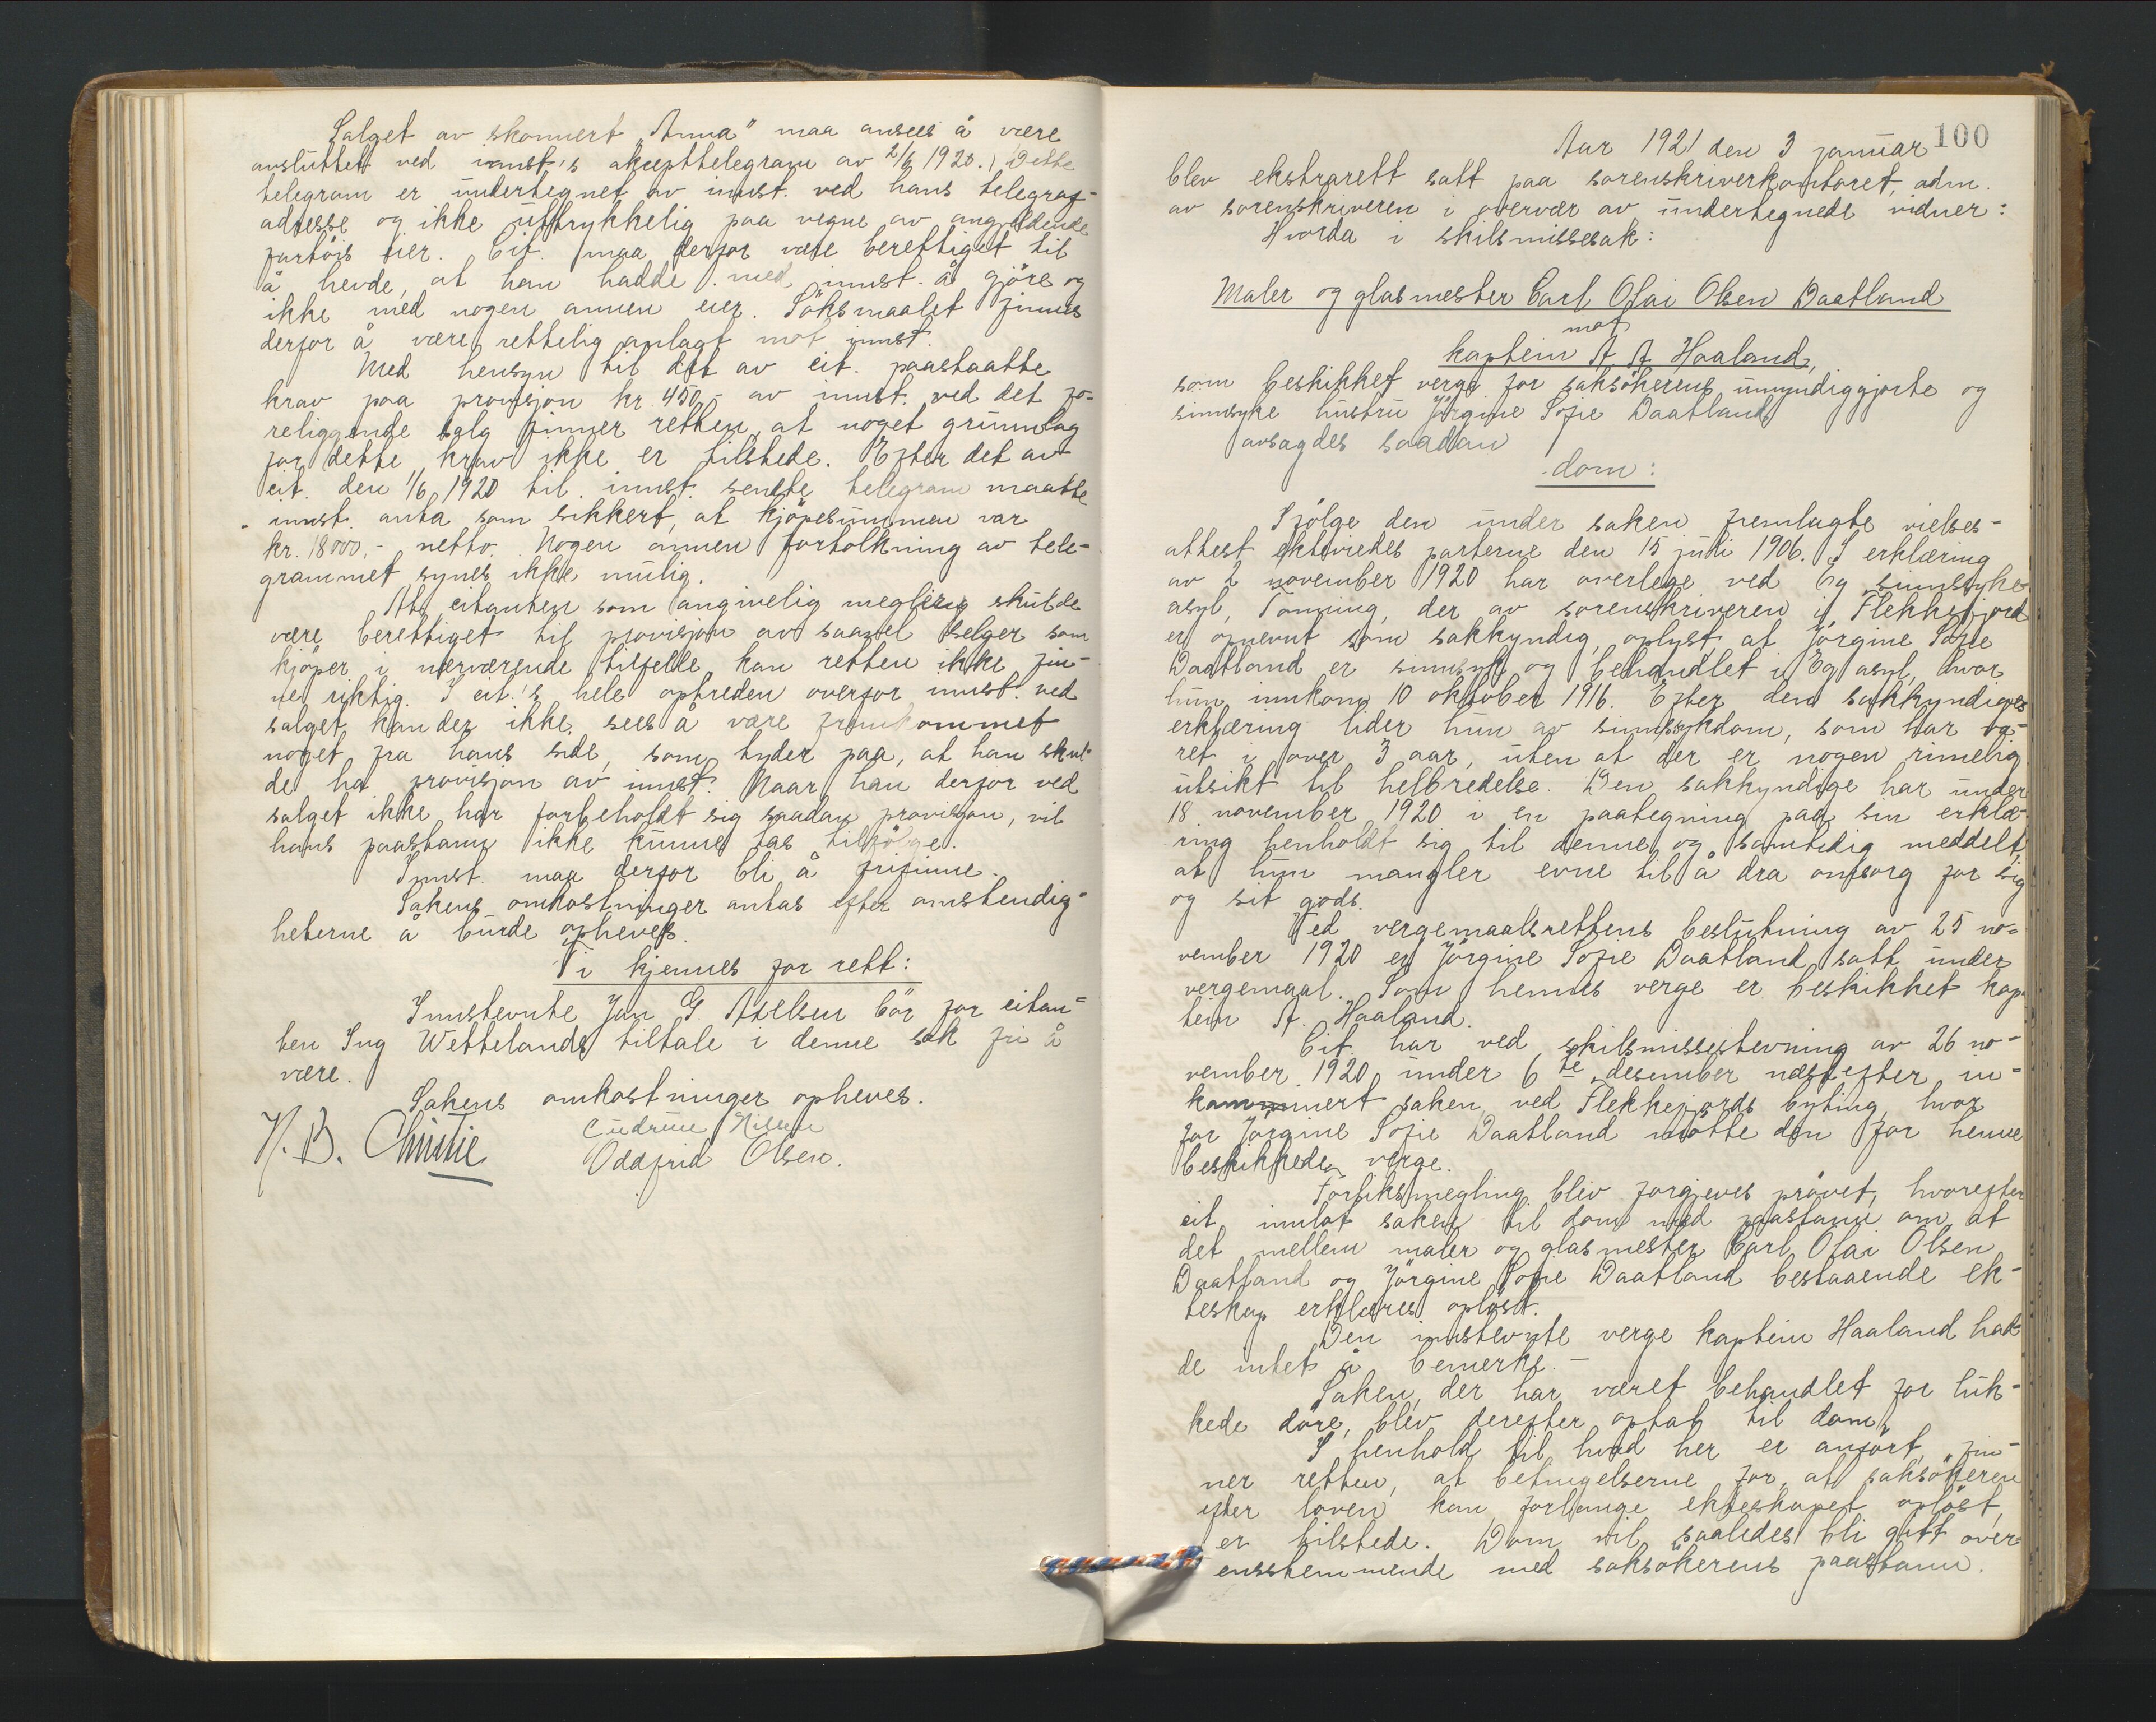 Salget av skonnert "Anna" maa ansees å være
avsluttet ved innst's aksepttelegram av 2/6 1920. Dette
telegram er undertegnet av innst. ved hans telegraf-
adresse og ikke uttrykkelig paa vegne av angjeldende
fartöis eier. Cit. maa derfor være berettiget til
å hevde, at han hadde med innst. å gjöre og
ikke med nogen annen eier. Söksmaalet finnes
derfor å være rettelig anlagt mot innst.
Med hensyn til det av cit. paastaatte
krav paa provisjon kr. 450,- av innst. ved det fo-
religgende salg finner retten, at noget grunnlag
for dette krav ikke er tilstede. Efter det av
cit. den 1/6 1920 til innst. sendte telegram maatte
innst. anta som sikkert, at kjöpesummen var
kr. 18000,- netto. Nogen annen fortolkning av tele-
grammet synes ikke mulig.
At citanten som angivelig megler skulde
være berettiget til provisjon av saavel selger som
kjöper i nærværende tilfelle kan retten ikke fin-
ne riktig. I cit.'s hele optreden overfor innst. ved
salget kan der ikke sees å være fremkommet
noget fra hans side, som tyder paa, at han skul-
de ha provisjon av innst. Naar han derfor ved
salget ikke har forbeholdt sig saadan provisjon, vil
hans paastann ikke kunne tas tilfölge.
Innst. maa derfor bli å frifinne.
Sakens omkostninger antas efter omstendig-
heterne å burde opheves.
Ti kjennes for rett:
Innstevnte Jan G. Axelsen bör for citan-
ten Ing Wettelands tiltale i denne sak fri å
være.
Sakens omkostninger opheves.
N. B. Christie
Gudrun Nilsen
Oddfrid Olsen.
100
Aar 1921 den 3 januar
blev ekstrarett satt paa sorenskriverkontoret, adm.
av sorenskriveren i overvær av undertegnede vidner:
Hvorda i skilsmissesak:
Maler og glasmester Carl Olai Olsen Daatland
mot
kaptein A. A. Haaland,
som beskikket verge for saksökerens umyndiggjorte og
sinnsyke hustru Jörgine Sofie Daatland
avsagdes saadan
dom:
Ifölge den under saken fremlagte vielses-
attest ektviedes parterne den 15 juli 1906. I erklæring
av 2 november 1920 har overlege ved Eg sinnsyke-
asyl, Tönning, der av sorenskriveren i Flekkefjord
er opnevnt som sakkyndig, oplyst, at Jörgine Sofie
Daatland er sinnsyk og behandlet i Eg asyl, hvor
hun innkom 10 oktober 1916. Efter den sakkyndiges
erklæring lider hun av sinnssykdom, som har va-
ret i over 3 aar, uten at der er nogen rimelig
utsikt til helbredelse. Den sakkyndige har under
18 november 1920 i en paategning paa sin erklæ-
ring henholdt sig til denne og samtidig meddelt,
at hun mangler evne til å dra omsorg for sig
og sit gods.
Ved vergemaalsrettens beslutning av 25 no-
vember 1920 er Jörgine Sofie Daatland satt under
vergemaal. Som hennes verge er beskikket kap-
tein A. Haaland.
Cit. har ved skilsmissestevning av 26 no-
vember 1920 under 6te desember næstefter in-
kaminert saken ved Flekkefjords byting, hvor
for Jörgine Sofie Daatland mötte den for henne
beskikkede verge.
Forliksmegling blev forgjeves prövet, hvorefter
cit. innlot saken til dom med paastann om, at
det mellem maler og glasmester Carl Olai Olsen
Daatland og Jörgine Sofie Daatland bestaaende ek-
teskap erklæres oplöst.
Den innstevnte verge kaptein Haaland had-
de intet å bemerke. -
Saken, der har været behandlet for luk-
kede döre, blev derefter optat til dom.
I henhold til hvad her er anfört, fin-
ner retten, at betingelserne for, at saksökeren
efter loven kan forlange ekteskapet oplöst,
er tilstede. Dom vil saaledes bli gitt over-
ensstemmende med saksökerens paastann.